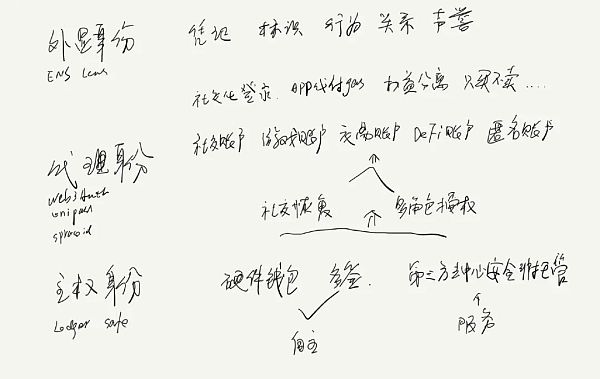 外显身份 凭记 标识 行为 关系 声誉
ENS Lens
社交化登录. APP代付gas 权益分离 只买不卖....
代理身份 社交账户 游戏账户 交易账户 DeFi账户 匿名账户
web3Auth
unipass
社交恢复 多角色授权
主权身份 硬件钱包 多签. 第三方去中心安全
Ledger safe
自主 服务